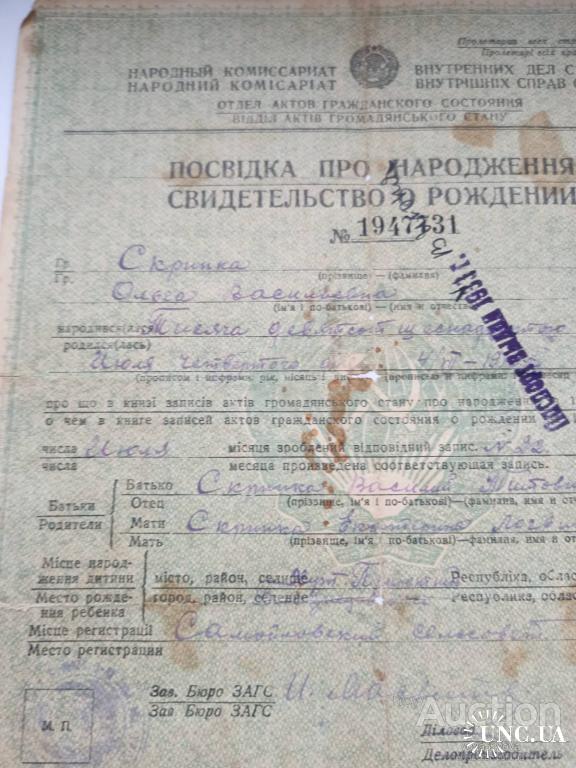 Пролетарии всех стра
Пролетарі всіх кра
НАРОДНЫЙ КОМИССАРИАТ ВНУТРЕННИХ ДЕЛ С
НАРОДНИЙ КОМІСАРІАТ ВНУТРІШНІХ СПРАВ
ОТДЕЛ АКТОВ ГРАЖДАНСКОГО СОСТОЯНИЯ
ВІДДІЛ АКТІВ ГРОМАДЯНСЬКОГО СТАНУ
ПОСВІДКА ПРО НАРОДЖЕННЯ
СВИДЕТЕЛЬСТВО О РОЖДЕНИИ
№ 1947731
Паспорт выдан 1933 г.
Гр. Скрипка
Гр. (прізвище) — (фамилия)
Ольга Васильевна
(ім'я і по-батькові) — (имя и отчест
народився(лась) Тисяча девятсот шеснадцатого
родился(лась)
Июля четвертого
(прописом і цифрами рік, місяць і (прописью и цифрами
про що в книзі записів актів громадянського стану про народження
о чем в книге записей актов гражданского состояния о рождении
числа Июля місяця зроблений відповідний запис. № 22
числа месяца произведена соответствующая запись.
Батьки
Родители
Батько Скрипка Василий Титови
Отец (прізвище, ім'я і по-батькові)—(фамилия, имя и отче
Мати Скрипка
Мать (прізвище, ім'я і по-батькові)—фамилия, имя и от
Місце народження дитини місто, район, селище Республіка, облас
Место рождения ребенка город, район, селение Республика, област
Місце регистрації Самойловский сельсовет
Место регистрации
Зав. Бюро ЗАГС
Зав Бюро ЗАГС
М. П.
Діловод
Делопроизводитель
Auction
UNC.UA